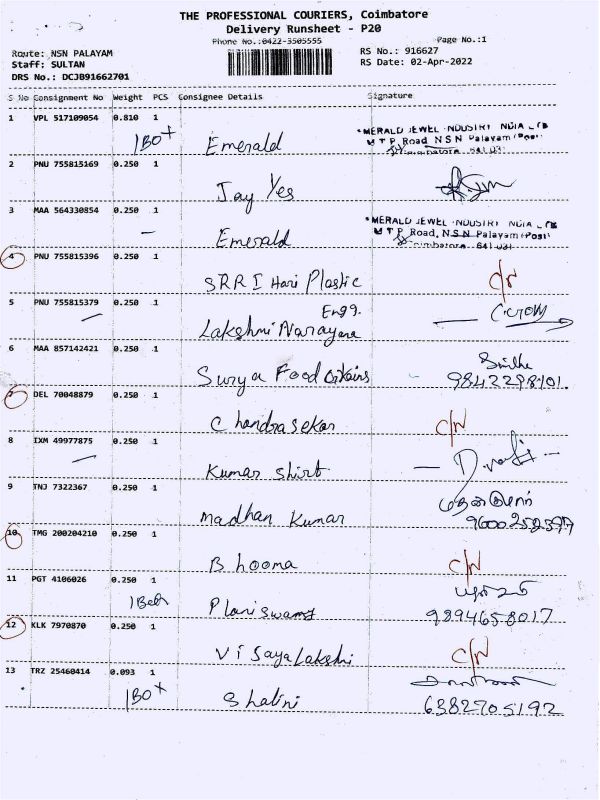 THE PROFESSIONAL COURIERS, Coimbatore
Delivery Runsheet - P20
Phone No.:0422-3505555
Page No.:1
Route: NSN PALAYAM
RS No.: 916627
Staff: SULTAN
RS Date: 02-Apr-2022
DRS No.: DCJB91662701
S No Consignment No Weight PCS Consignee Details Signature
1 VPL 517109054 0.810 1
1 BOX Emerald
M T P Road N S N Palayam (Post)
2 PNU 755815169 0.250 1
Jay Yes
3 MAA 564330854 0.250 1
Emerald
M T P Road, N.S N Palayam (Post)
4 PNU 755815396 0.250 1
SRRI Hari Plastic C/N
5 PNU 755815379 0.250 1
Engg.
Lakshmi Narayana
6 MAA 857142421 0.250 1
Surya Food Grains 9842298101.
7 DEL 70048879 0.250 1
Chandrasekar C/N
8 IXM 49977875 0.250 1
Kumar Shirt
9 TNJ 7322367 0.250 1
Madhan Kumar
10 TMG 200204210 0.250 1
Bhooma C/N
11 PGT 4106026 0.250 1
Planiswamy 9894658017
12 KLK 7970870 0.250 1
Visayalakshi C/N
13 TRZ 25460414 0.093 1
1 BOX Shalini 6382705192